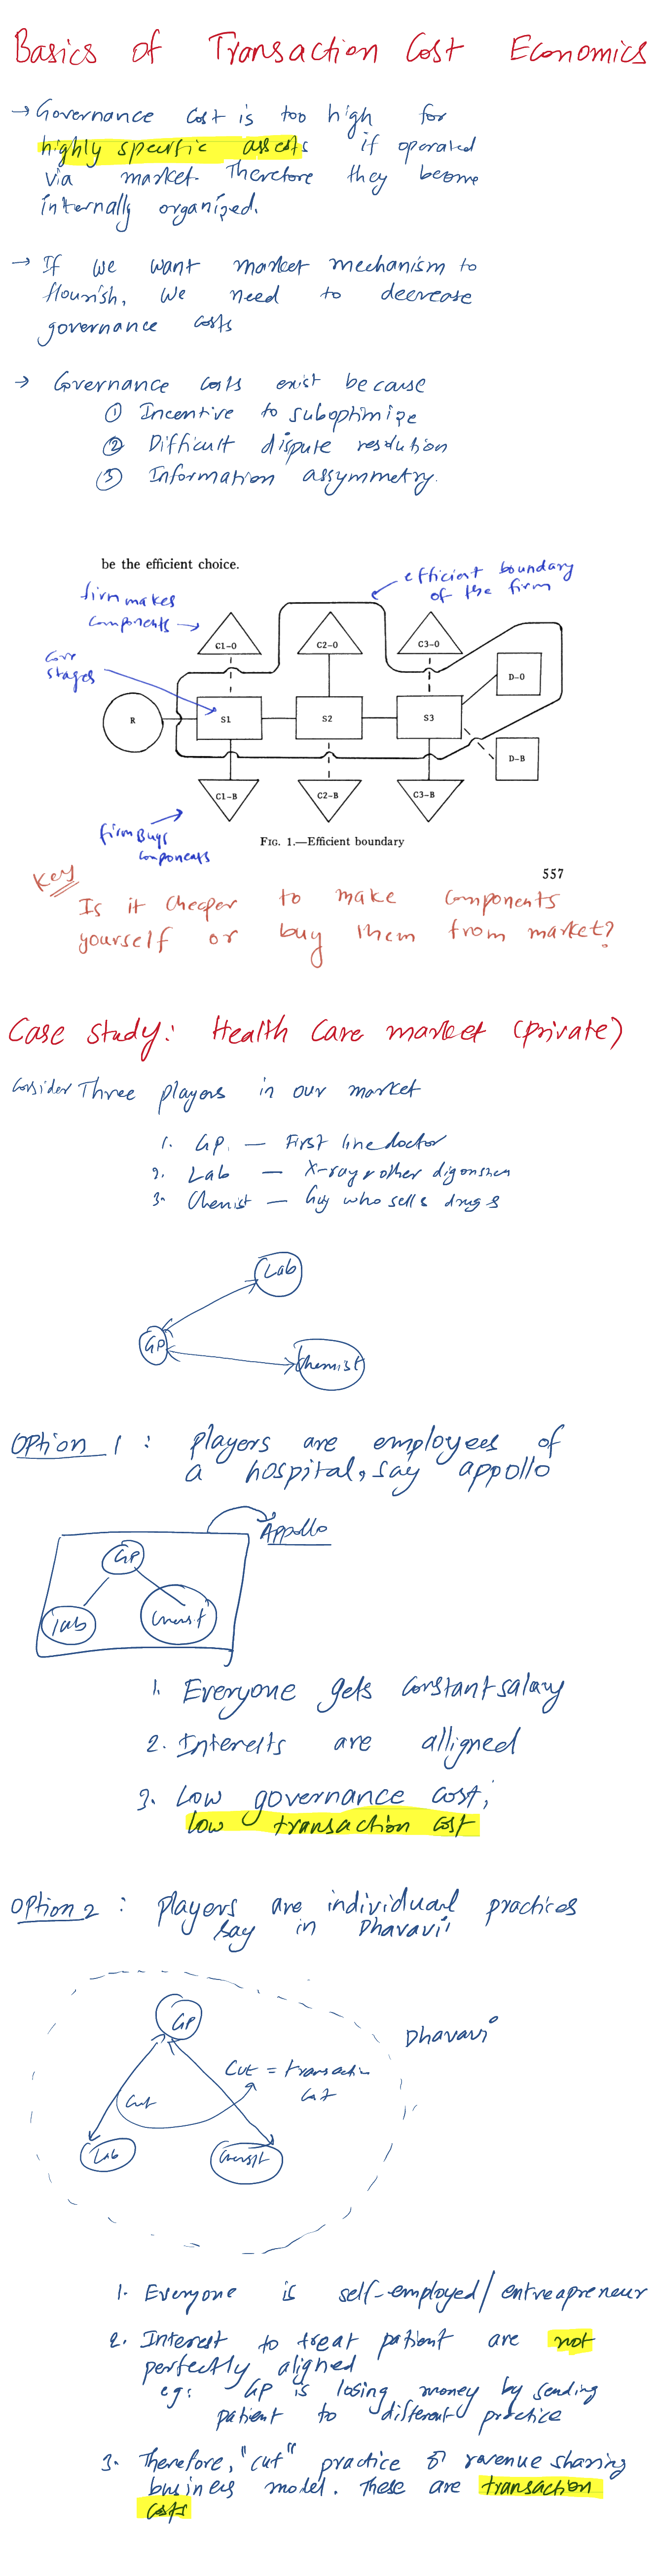 Basics of Transaction Cost Economics
→ Governance cost is too high for
highly specific assets if operated
via market. Therefore they become
internally organized.
→ If we want market mechanism to
flourish, we need to decrease
governance costs
→ Governance costs exist because
① Incentive to suboptimize
② Difficult dispute resolution
③ Information assymmetry.
be the efficient choice.
efficient boundary
of the firm
firm makes
components →
core
stages
C1-O
C2-O
C3-O
D-O
R
S1
S2
S3
D-B
C1-B
C2-B
C3-B
firm Buys
components
FIG. 1.—Efficient boundary
557
Key
Is it cheaper to make components
yourself or buy them from market?
Case study: Health Care market (private)
Consider Three players in our market
1. GP. — First line doctor
2. Lab — X-ray & other
3. Chemist — Guy who sells drugs
Lab
GP
Chemist
Option 1 : players are employees of
a hospital, say appollo
Appollo
GP
Lab
Chemist
1. Everyone gets constant salary
2. Interests are alligned
3. Low governance cost,
low transaction cost
Option 2 : players are individual practices
say in Dhavavi
GP
Dhavavi
Cut = transaction
cost
Cut
Lab
Chemist
1. Everyone is self-employed/entreapreneur
2. Interest to treat patient are not
perfectly aligned
eg: GP is losing money by sending
patient to different practice
3. Therefore, "cut" practice or revenue sharing
business model. These are transaction
costs